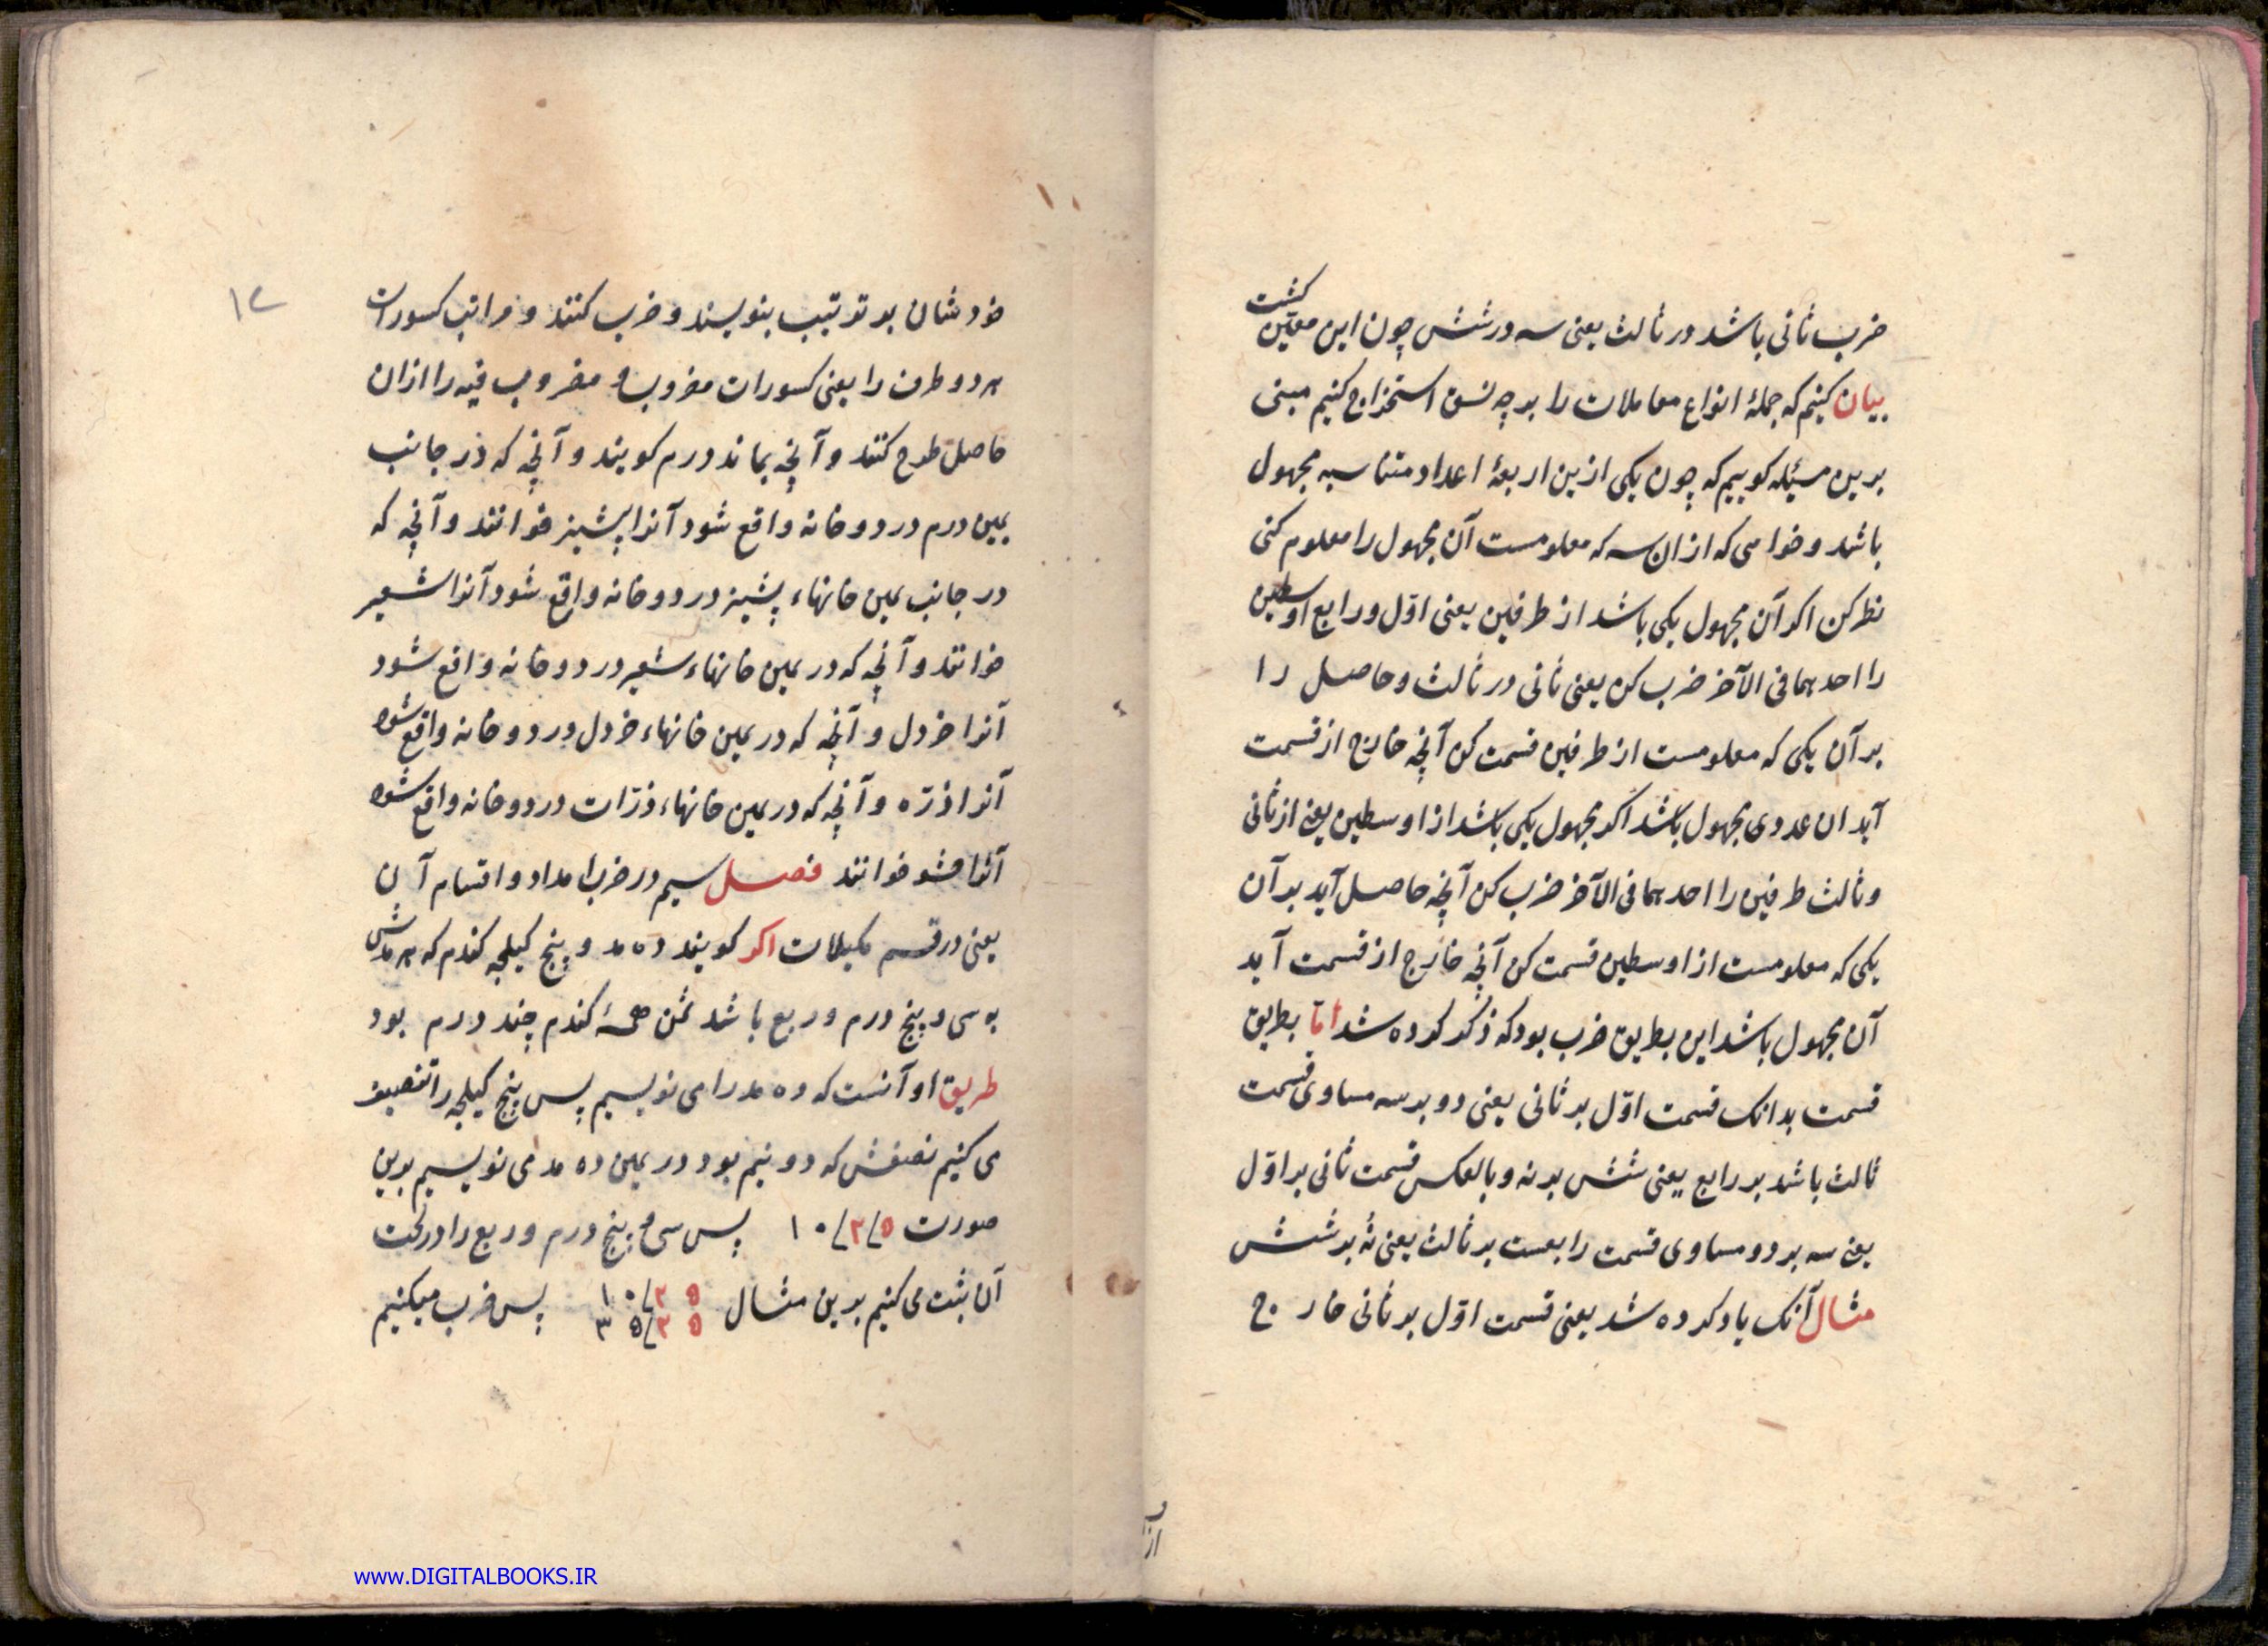 ضرب ثانی باشد در ثالث یعنی سه در شش چون این معین کشت
بیان کنیم که جملهٔ انواع معاملات را بر چه نسق استخراج کنیم مبنی
برین مسئله کوییم که چون یکی ازین اربعهٔ اعداد متناسبه مجهول
باشد و خواهی که ازان سه که معلومست آن مجهول را معلوم کنی
نظر کن اکر آن مجهول یکی باشد از طرفین یعنی اوّل و رابع اوسطین
را احدهما فی الآخر ضرب کن یعنی ثانی در ثالث و حاصل را
بر آن یکی که معلومست از طرفین قسمت کن آنچه خارج از قسمت
آید ان عددی مجهول باشد اکر مجهول یکی باشد از اوسطین یعنی از ثانی
و ثالث طرفین را احدهما فی الآخر ضرب کن آنچه حاصل آید بر آن
یکی که معلومست از اوسطین قسمت کن آنچه خارج از قسمت آید
آن مجهول باشد این بطریق ضرب بود که ذکر کرده شد امّا بطریق
قسمت بدانک قسمت اوّل بر ثانی یعنی دو بر سه مساوی قسمت
ثالث باشد بر رابع یعنی شش بر نه و بالعکس قسمت ثانی بر اوّل
یعنی سه بر دو مساوی قسمت رابعست بر ثالث یعنی نه بر شش
مثال آنک یاد کرده شد یعنی قسمت اوّل بر ثانی خارج
۱۲
خودشان بر ترتیب بنویسند و ضرب کنند و مراتب کسورات
هر دو طرف را یعنی کسورات مضروب و مضروب فیه را ازان
حاصل طرح کنند و آنچه بماند درم کویند و آنچه که در جانب
یمین درم در دو خانه واقع شود آنرا پشیز خوانند و آنچه که
در جانب یمین خانهاء پشیز در دو خانه واقع شود آنرا شعیر
خوانند و آنچه که در یمین خانهاء شعیر در دو خانه واقع شود
آنرا خردل و آنچه که در یمین خانهاء خردل در دو خانه واقع شود
آنرا ذرّه و آنچه که در یمین خانهاء ذرّات در دو خانه واقع شود
آنرا خوانند فصل سیم در ضرب امداد و اقسام آن
یعنی در قسم مکیلات اکر کویند ده مد و پنج کیلجه کندم که هر مدش
به سی و پنج درم و ربع باشد ثمن کندم چند درم بود
طریق او آنست که ده مد را می نویسیم پس پنج کیلجه را تنصیف
می کنیم نصفش که دو نیم بود در یمین ده مد می نویسیم برین
صورت ۱۰/۲/۵ پس سی و پنج درم و ربع را در تحت
آن ثبت می کنیم برین مثال ۱۰/۲۵ ۳۵/۲۵ پس ضرب میکنیم
www.DIGITALBOOKS.IR